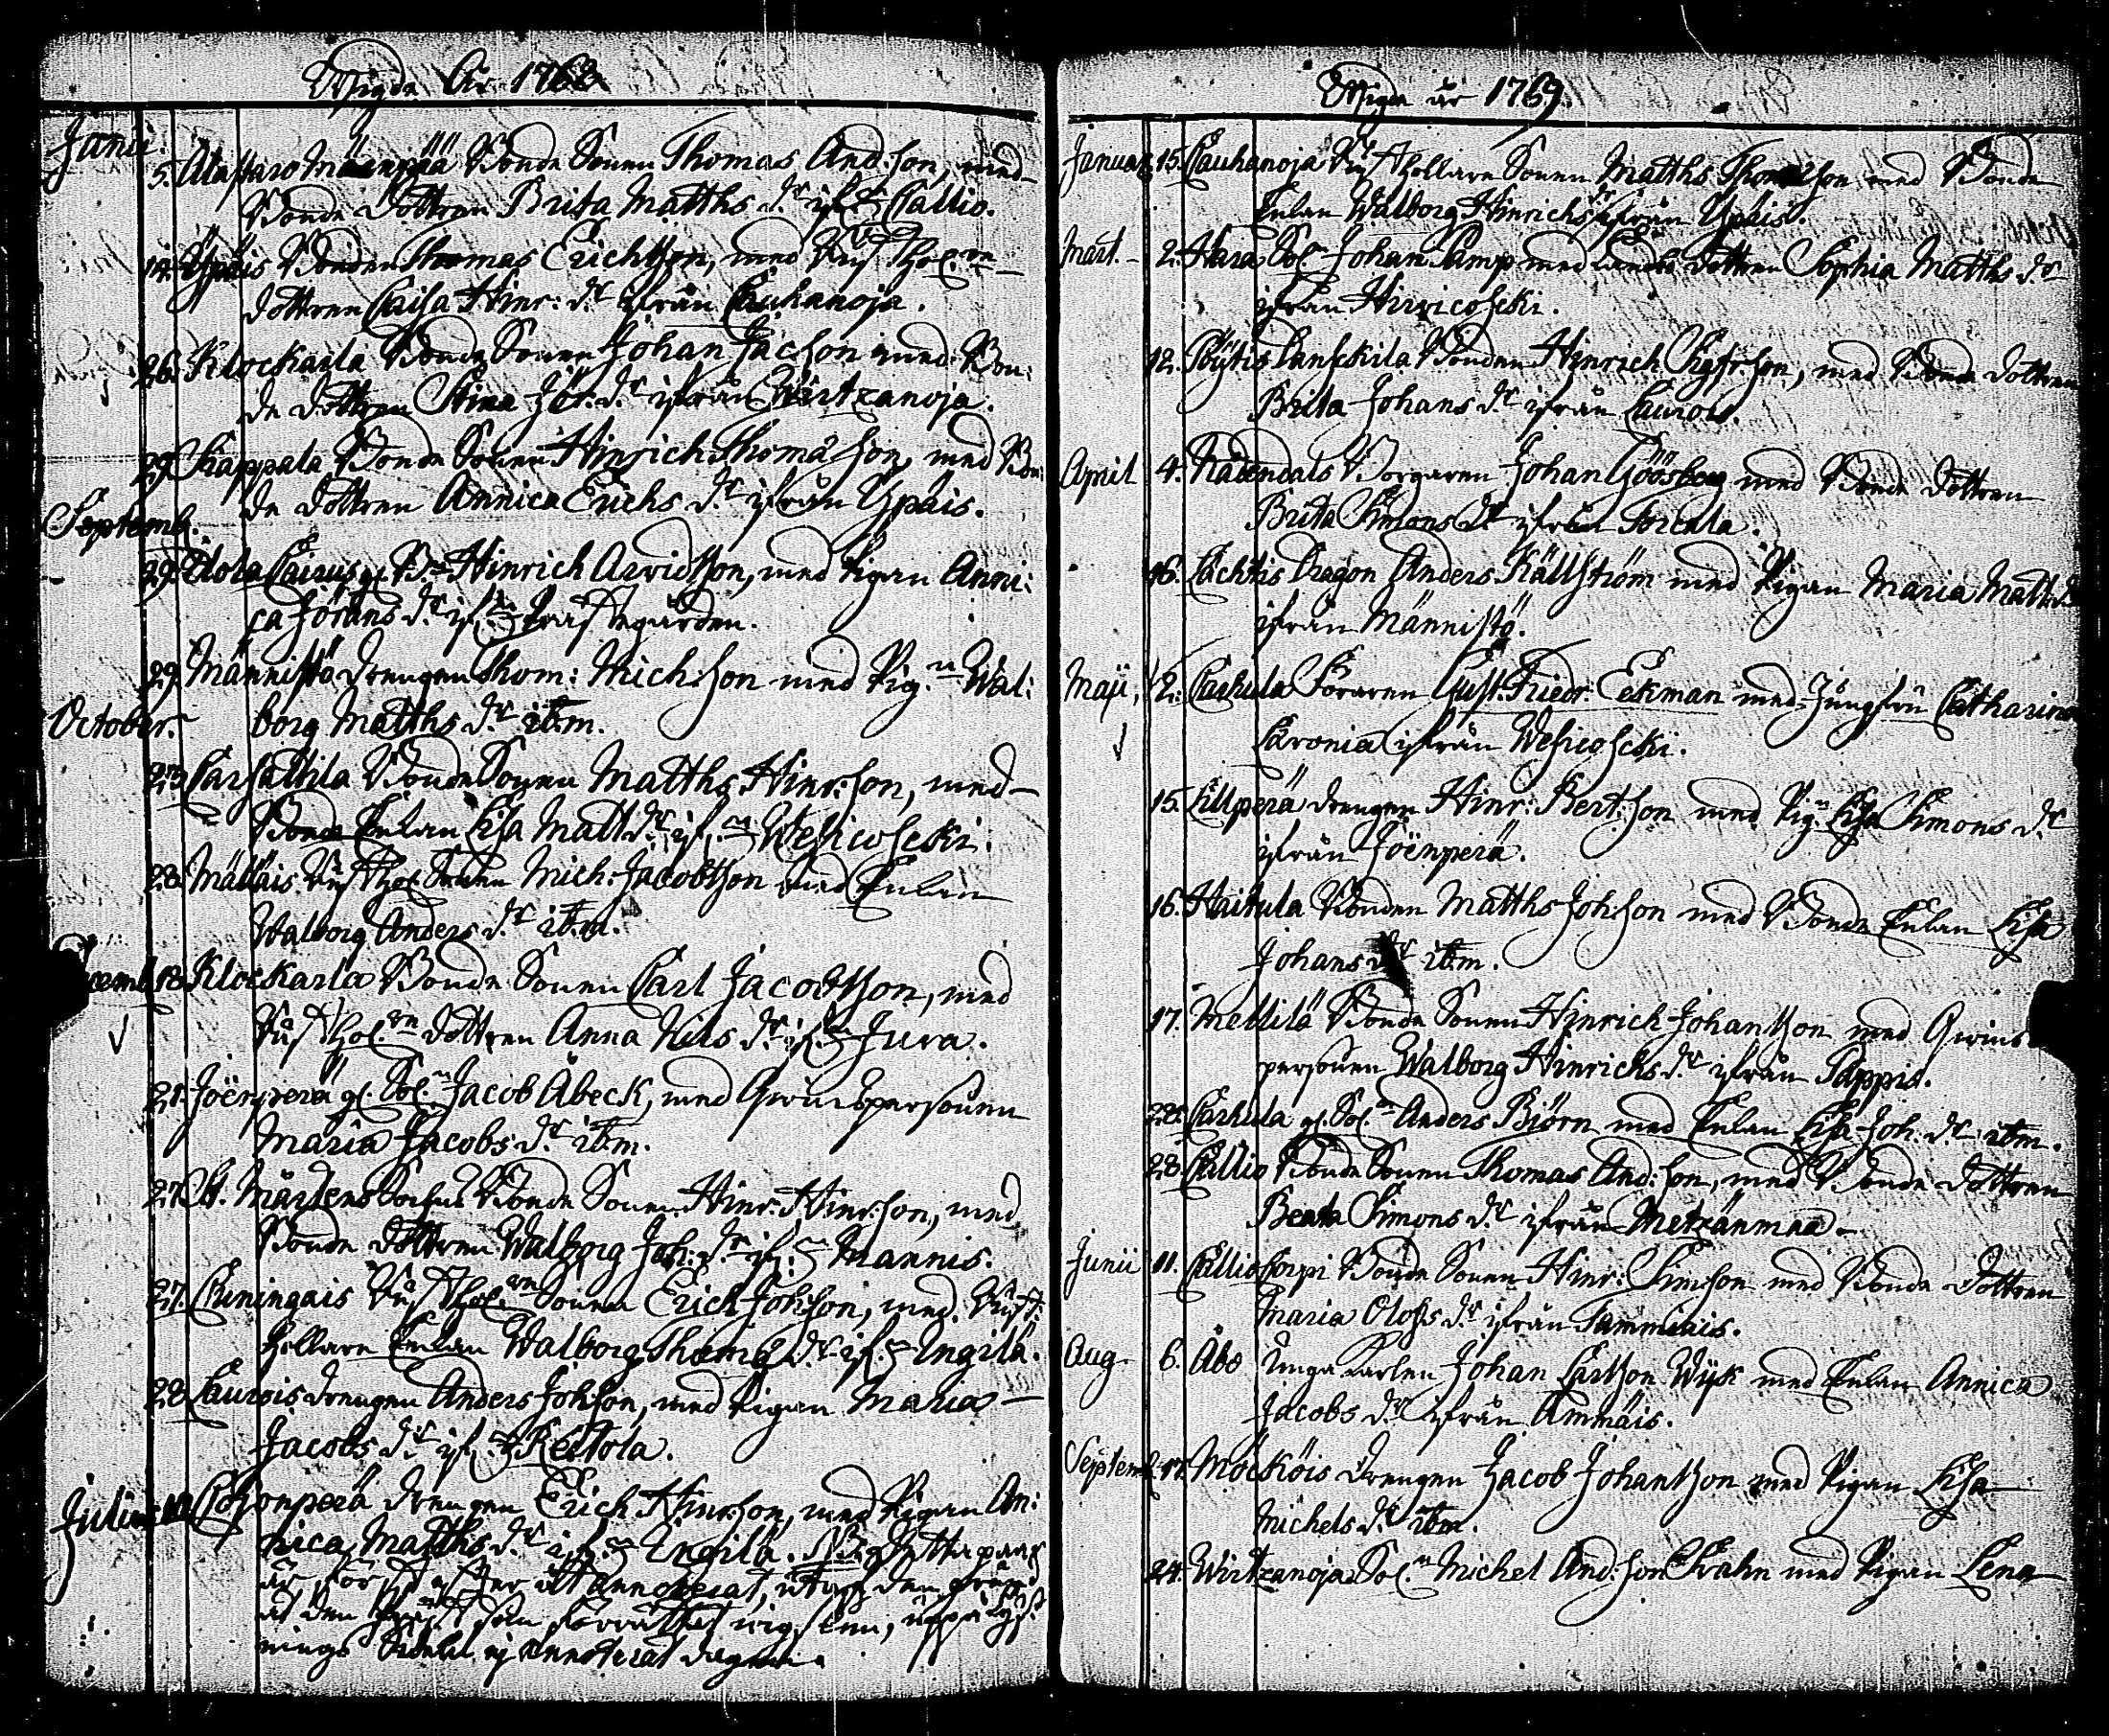 Wigde År 1768
Janu:
5. Alastaro Mäenpää Bonde Sonen Thomas And:son, med
Bonde dottren Brita Matths d:r if:n Callio.
Ypäis Bonden Thomas Erichsson, med Rusthol:re
dottren Caisa Hinr: d:r ifrån Cauhanoja.
26. Klockarla Bonde Sonen Johan Jacson med Bon:
de dottren Stina Jör: d:r ifrån Wirtzanoja.
29 Kappala Bonde Sonen Hinrich Thomasson, med Bon:
de dottren Annica Erichs d:r ifrån Ypäis.
Septemb.
29. Cairus gl. Hinrich Arvidsson, med Pigan Anni:
ca Jörans d:r if:n Prästegården.
29. Männistö drengen Thom: Mich:son med Pig:n Wal:
October. borg Matths d:r ibm.
Carsattila Bonde Sonen Matths Hinr:son, med
Bonde Enkan Lisa Matt d:r if:n Wesicoscki.
28. Mällais Rusthol Sonen Mich: Jacobsson med Enkan
Walborg Anders d:r ibm.
18. Klockarla Bonde Sonen Carl Jacobsson, med
Rusthol:re dottren Anna Nils d:r if:n Jura.
21. Joënperä gl. Sol:n Jacob Åbeck, med Qwinspersonen
Maria Jacobs d:r ibm.
27. St. Mårtens Sochn Bonde Sonen Hinr: Hinr:son, med
Bonde dottren Walborg Joh: d:r if:n Mannis.
27. Cuningais Rusthol:re Sonen Erich Johsson, med Rust:
hollare Enkan Walborg Thoms d:r if:n Ungilä.
28. Laurois drengen Anders Johsson, med Pigan Maria
Jacobs d:r if:n Keltola.
Julii Pohjonperä drengen Erich Hinrsson, med Pigan An:
nica Matths d:r if:n Ungilä. NB. detta paar
är först efter åt annoterat, utaf den
at den Präst som förrättat wigseln, uppå Lys:
nings Sedeln ej annoterat dagen.
Wigde år 1769.
Januar. 15. Cauhanoja Rusthollare Sonen Matths Thomasson med Bonde
Enkan Walborg Hinrichs d:r ifrån Ypäis.
Mart. 2. Hara Sol:n Johan Kamp med dottren Sophia Matths d:r
ifrån Hirvicoscki.
12. Pöytis Lanskila Bonden Hinrich Sigfr:son, med Bonde dottren
Brita Johans d:r ifrån Laurois.
April 4. Nådendals Borgaren Johan Göösberg med Bonde dottren
Brita Simons d:r ifrån Torcala.
16. Lachtis Dragon Anders Källström med Pigan Maria Matts d:r
ifrån Männistö.
Maji, 2. Carhula Föraren Gust: Friedr: Eekman med Jungfru Catharina
Laronia ifrån Wesicoscki.
15. Lillperä drengen Hinr: Bert:son med Pig:n Lisa Simons d:r
ifrån Joënperä.
16. Haitula Bonden Matths Johsson med Bonde Enkan Lisa
Johans d:r ibm.
17. Mellilä Bonde Sonen Hinrich Johansson med Qwins
personen Walborg Hinrichs d:r ifrån Pappis.
28. Carhula gl. Sol:n Anders Biörn med Enkan Lisa Joh: d:r ibm.
28. Callio Bonde Sonen Thomas And:son, med Bonde dottren
Beata Simons d:r ifrån Metzänmaa
Junii 11. Calliokorpi Bonde Sonen Hinr: Simsson med Bonde dottren
Maria Olofs d:r ifrån Tammiais.
Aug. 6. Åbo Unga Karlen Johan Carlsson Wijk med Enkan Annica
Jacobs d:r ifrån Ammäis.
Septemb. 17. Möcköis drengen Jacob Johansson med Pigan Lisa
Michels d:r ibm.
24. Wirtzanoja Sol:n Michel And:son Svahn med Pigan Lena